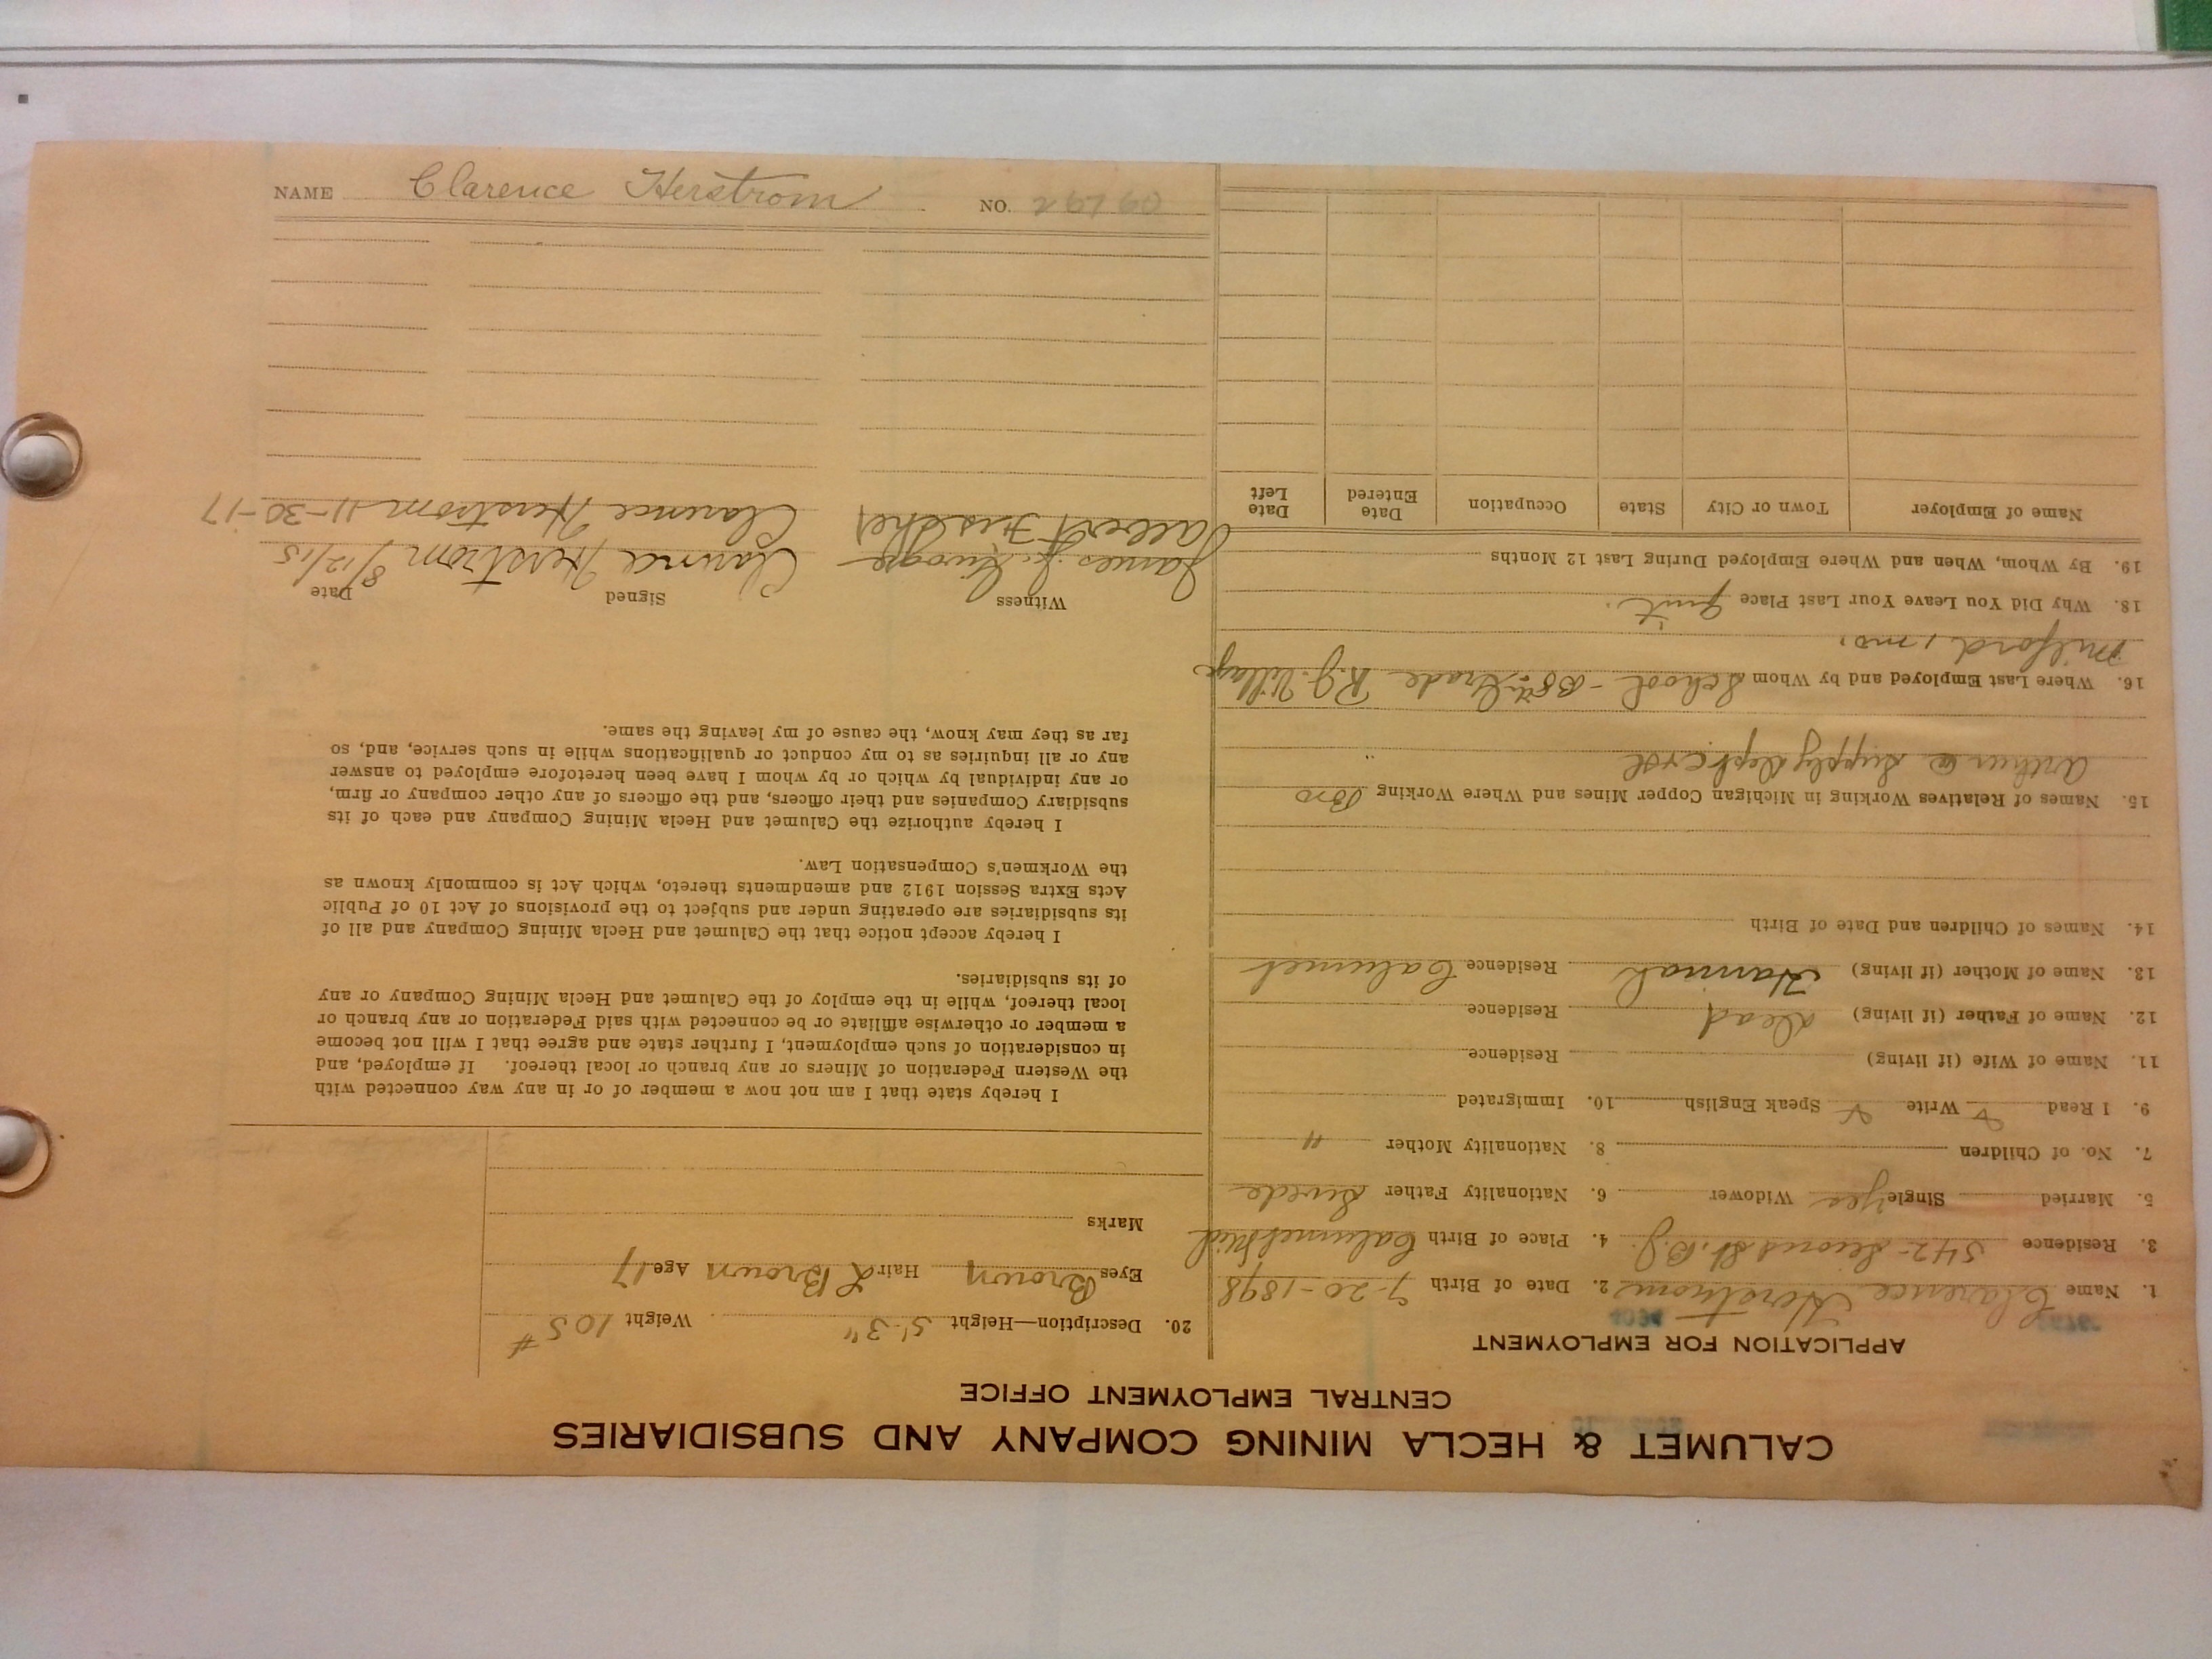 CALUMET & HECLA MINING COMPANY AND SUBSIDIARIES
CENTRAL EMPLOYMENT OFFICE
APPLICATION FOR EMPLOYMENT
1. Name Clarence Herstrom 2. Date of Birth 7-20-1898
3. Residence 342-Second St. R.J. 4. Place of Birth Calumet Mich
5. Married Single yes Widower 6. Nationality Father Swede
7. No. of Children 8. Nationality Mother "
9. I Read Write Speak English 10. Immigrated
11. Name of Wife (if living) Residence
12. Name of Father (if living) dead Residence
13. Name of Mother (if living) Hannah Residence Calumet
14. Names of Children and Date of Birth
15. Names of Relatives Working in Michigan Copper Mines and Where Working Bro
Arthur @ Supply Dept C & H "
16. Where Last Employed and by Whom School - 8th Grade R.J. Village
Milford, Mo.
18. Why Did You Leave Your Last Place Quit.
19. By Whom, When and Where Employed During Last 12 Months
Name of Employer Town or City State Occupation Date Entered Date Left
20. Description—Height 5'-3" Weight 105#
Eyes Brown Hair L Brown Age 17
Marks
I hereby state that I am not now a member of or in any way connected with
the Western Federation of Miners or any branch or local thereof. If employed, and
in consideration of such employment, I further state and agree that I will not become
a member or otherwise affiliate or be connected with said Federation or any branch or
local thereof, while in the employ of the Calumet and Hecla Mining Company or any
of its subsidiaries.
I hereby accept notice that the Calumet and Hecla Mining Company and all of
its subsidiaries are operating under and subject to the provisions of Act 10 of Public
Acts Extra Session 1912 and amendments thereto, which Act is commonly known as
the Workmen's Compensation Law.
I hereby authorize the Calumet and Hecla Mining Company and each of its
subsidiary Companies and their officers, and the officers of any other company or firm,
or any individual by which or by whom I have been heretofore employed to answer
any or all inquiries as to my conduct or qualifications while in such service, and, so
far as they may know, the cause of my leaving the same.
Witness Signed Date
James Clarence Herstrom 8/12/15
Albert Fischer Clarence Herstrom 11-30-17
NAME Clarence Herstrom NO. 26760